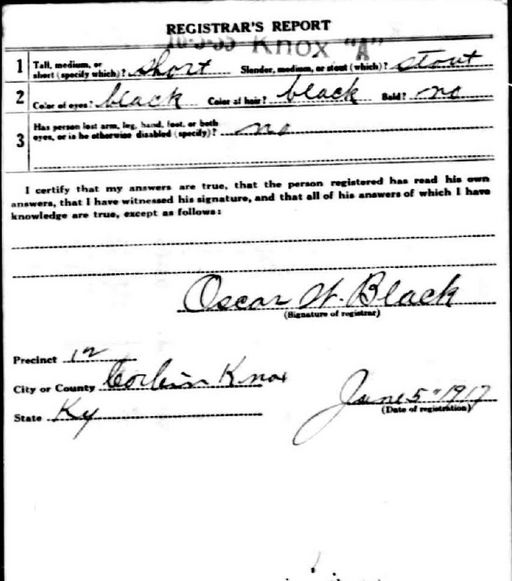 REGISTRAR'S REPORT
10-3-35 Knox "A"
1 Tall, medium, or short (specify which)? short Slender, medium, or stout (which)? stout
2 Color of eyes? black Color of hair? black Bald? no
3 Has person lost arm, leg, hand, foot, or both eyes, or is he otherwise disabled (specify)? no
I certify that my answers are true, that the person registered has read his own
answers, that I have witnessed his signature, and that all of his answers of which I have
knowledge are true, except as follows:
Oscar W. Black
(Signature of registrar)
Precinct 12
City or County Corbin Knox
State Ky
June 5" 1917
(Date of registration)